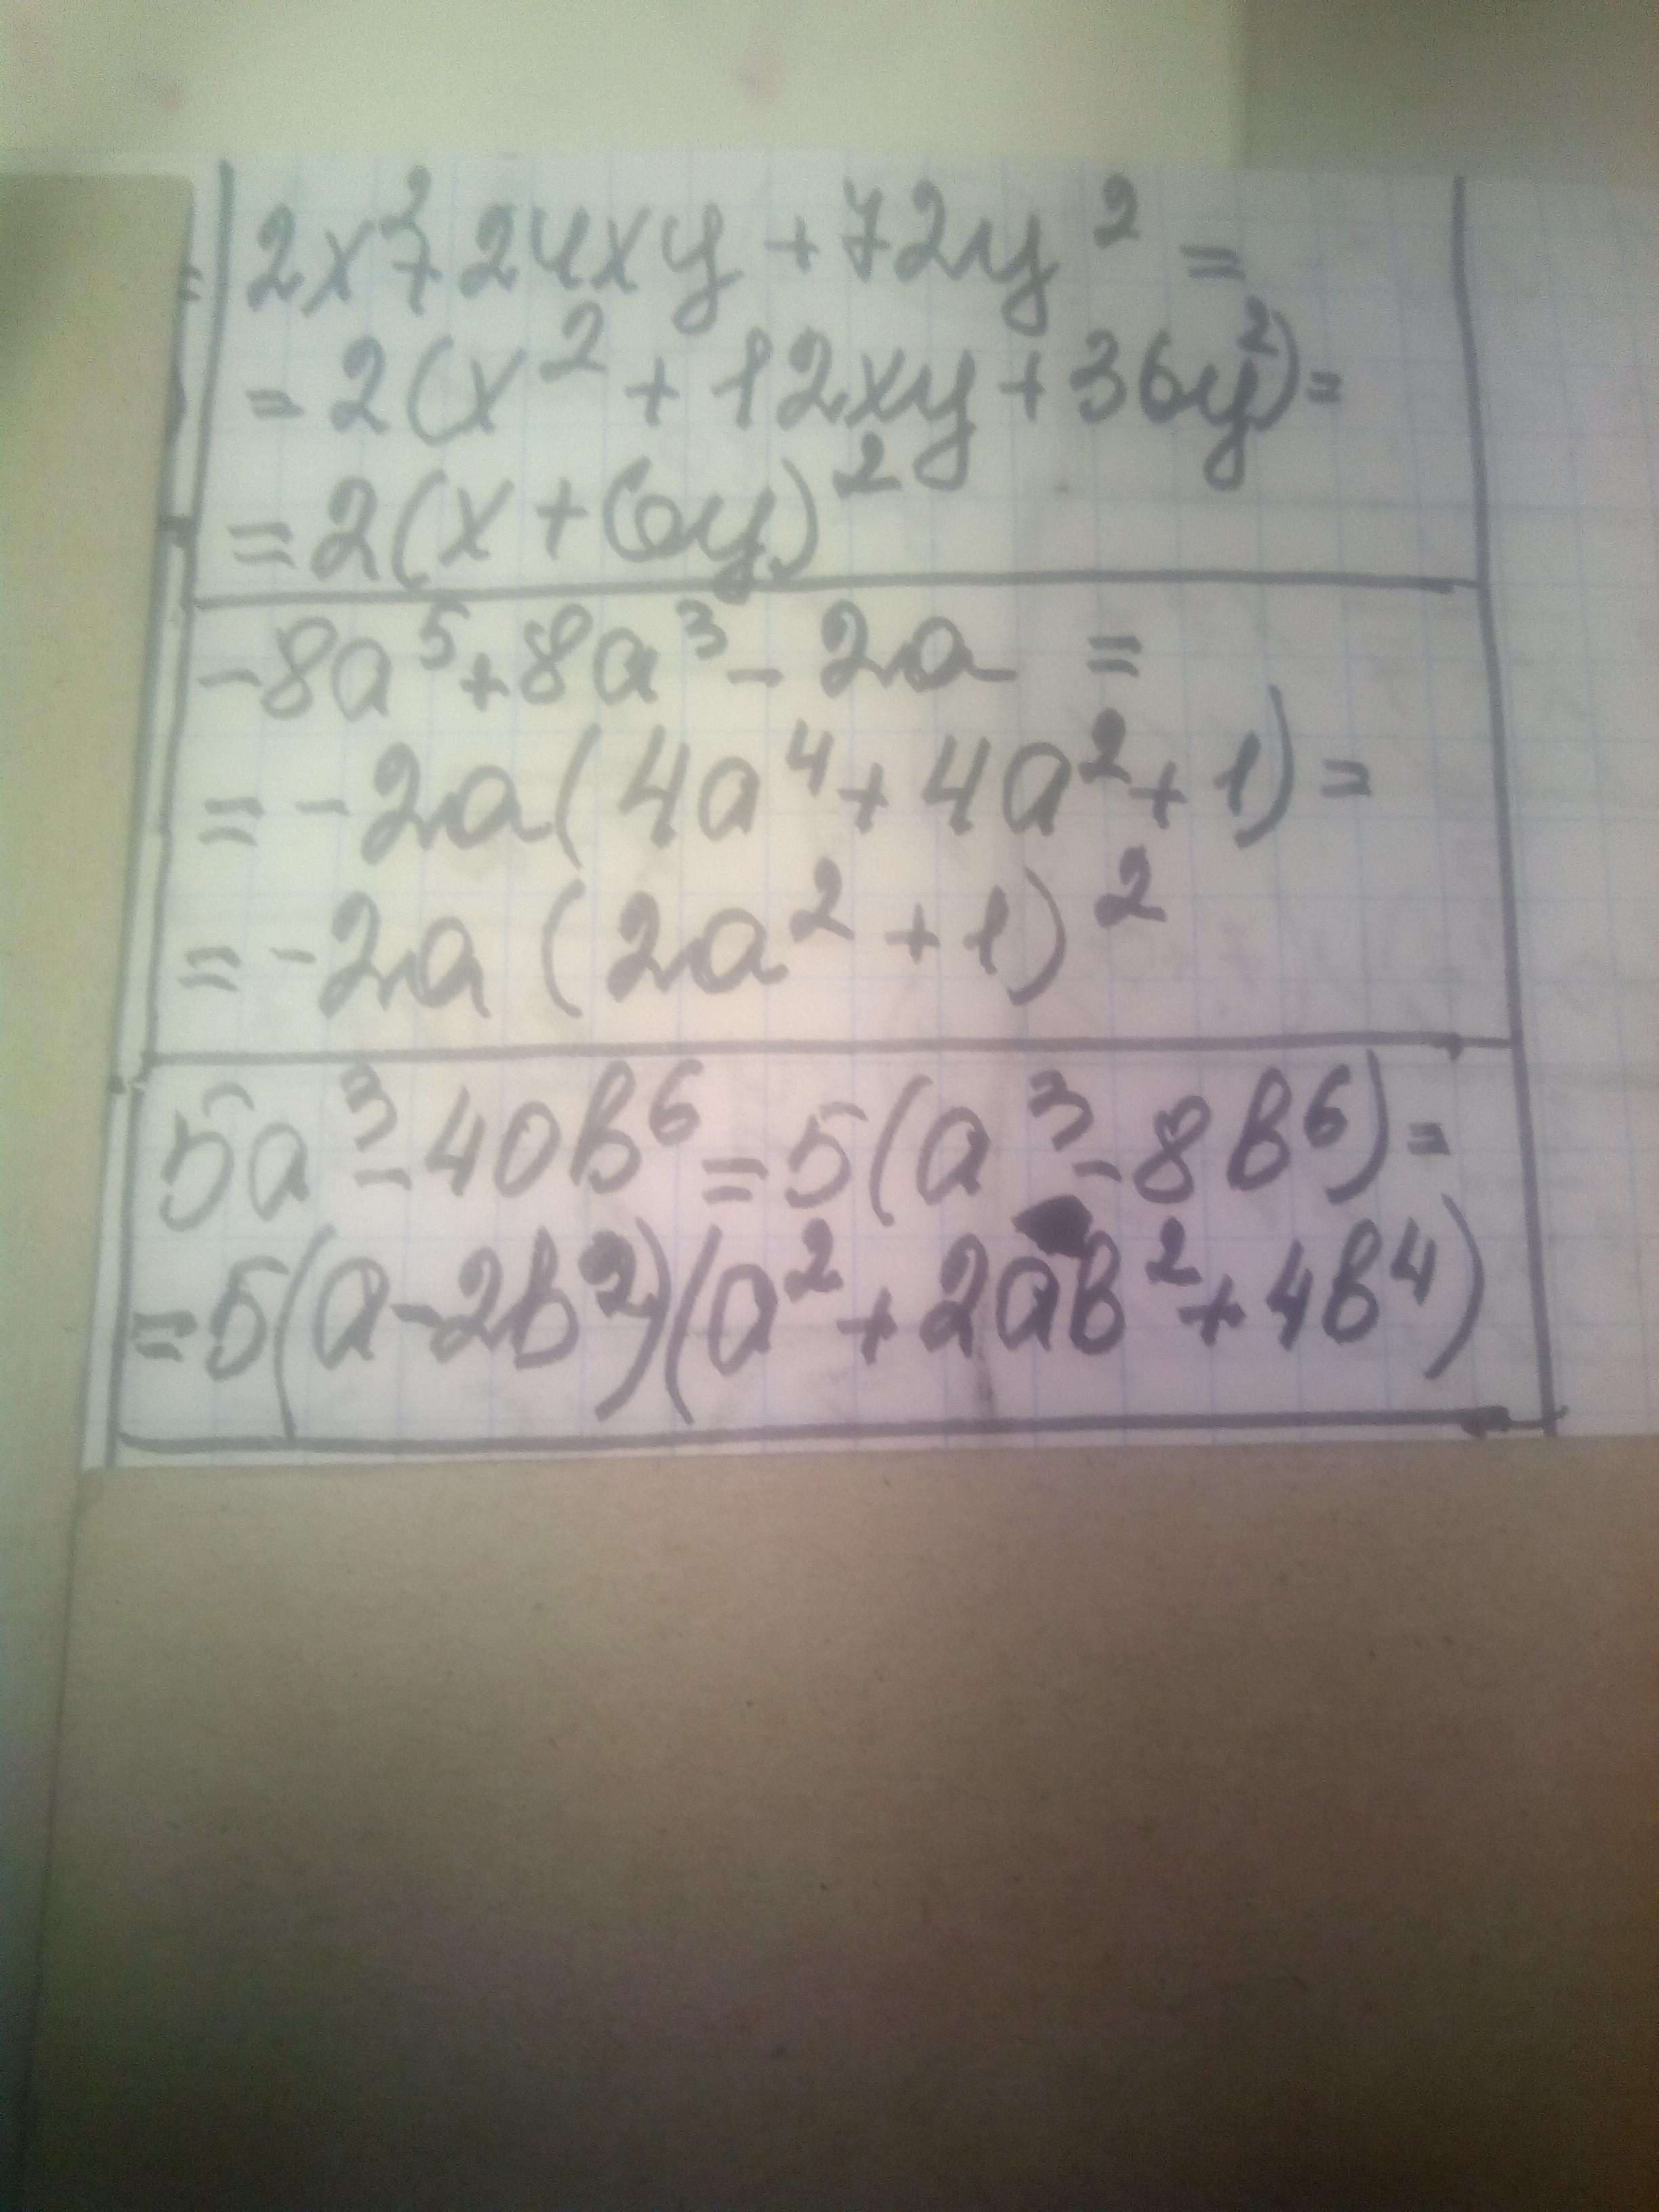 2x²+24xy+72y²=
=2(x²+12xy+36y²)=
=2(x+6y)²
-8a⁵+8a³-2a=
=-2a(4a⁴+4a²+1)=
=-2a(2a²+1)²
5a³-40b⁶=5(a³-8b⁶)=
=5(a-2b²)(a²+2ab²+4b⁴)